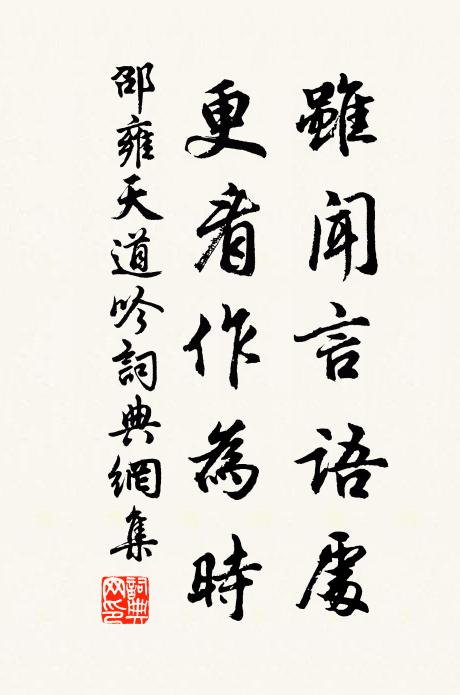 雖聞言語處
更看作為時
邵雍天道吟詞典網集
詞典網印